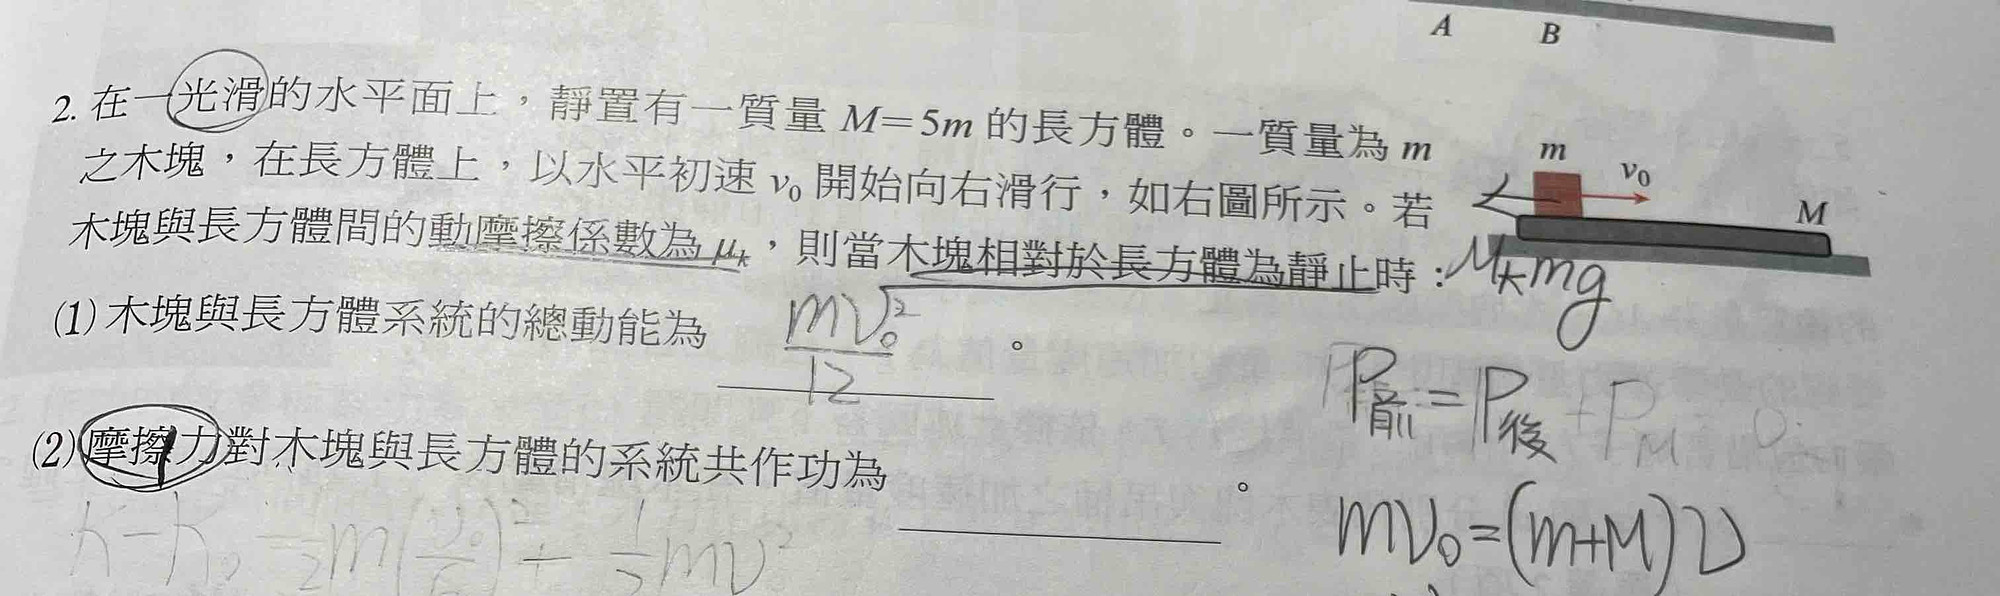 A B
2. 在一光滑的水平面上，靜置有一質量 M=5m 的長方體。一質量為 m
之木塊，在長方體上，以水平初速 v₀ 開始向右滑行，如右圖所示。若
木塊與長方體間的動摩擦係數為 μₖ，則當木塊相對於長方體為靜止時：
m v₀ M
μₖmg
(1) 木塊與長方體系統的總動能為 mv₀²/12 。
P前 = P後
(2) 摩擦力對木塊與長方體的系統共作功為 。
mv₀=(m+M)v
K-K₀ = 1/2 m(v₀/6)² + 1/2 mv²